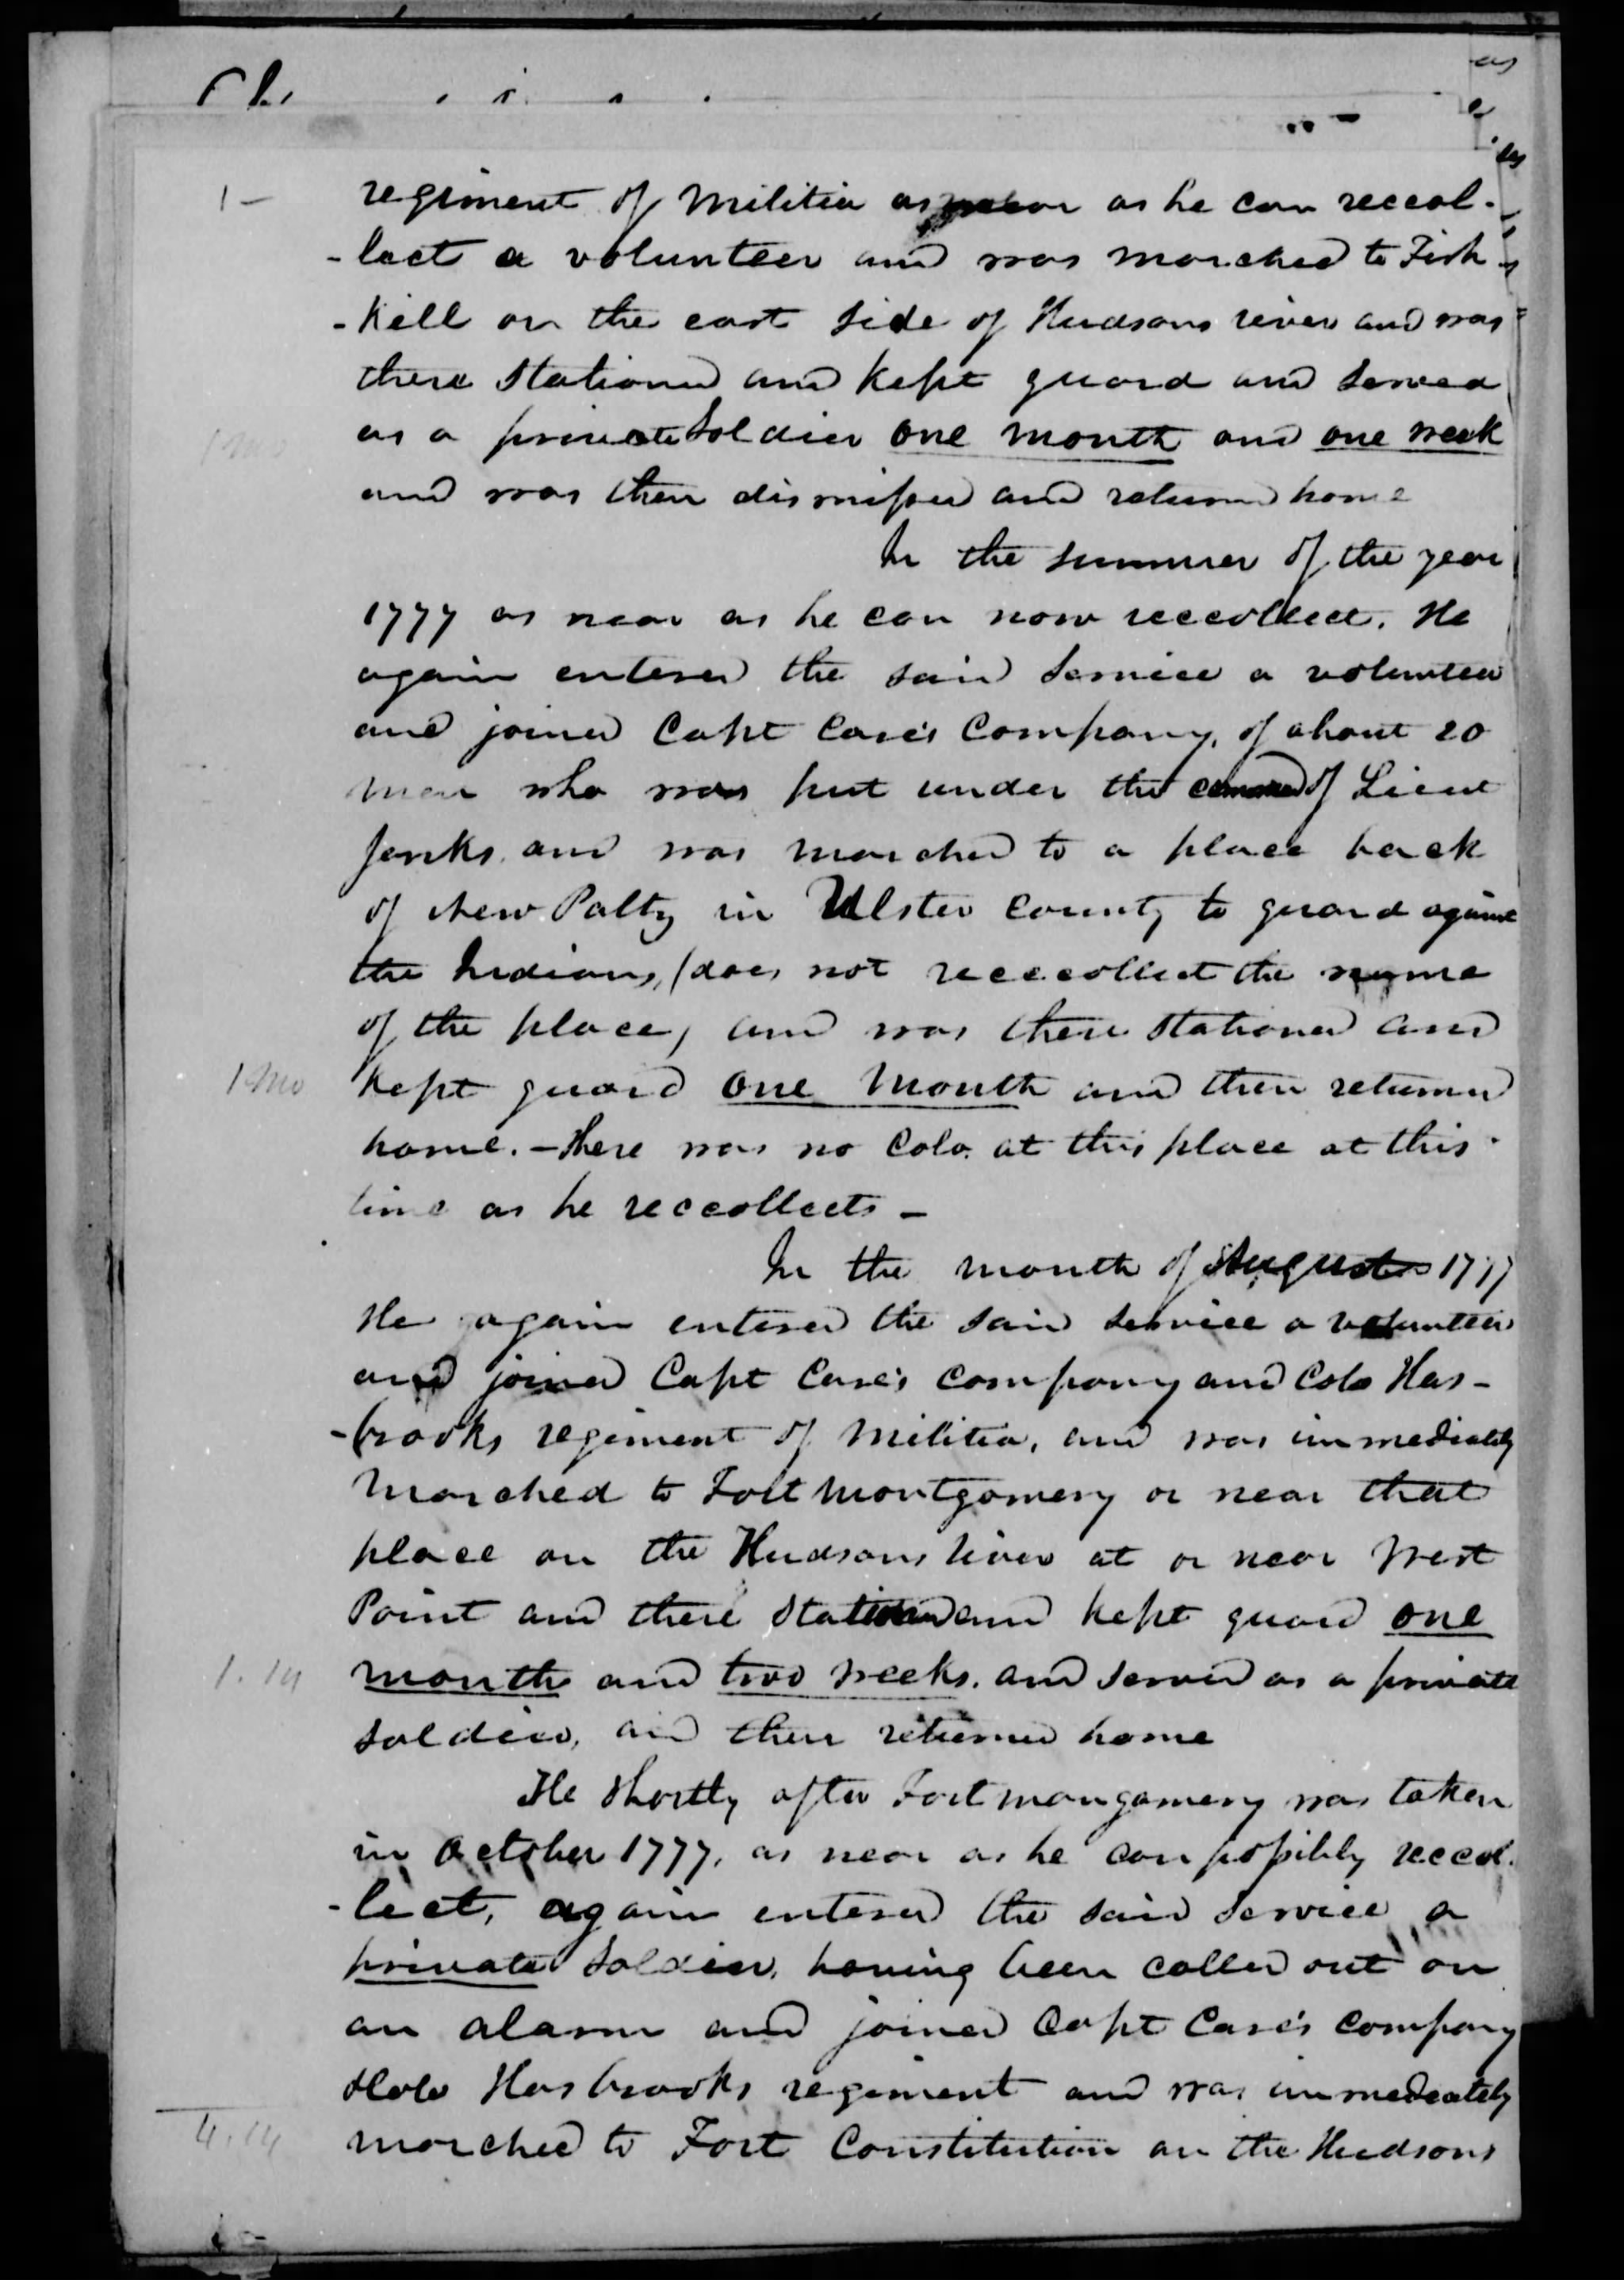 1 -
regiment of Militia as near as he can reccol-
-lect a volunteer and was marched to Fish
-kill on the east side of Hudsons river and was
there stationed and kept guard and served
1 mo
as a private soldier one month and one week
and was then dismissed and returned home
In the summer of the year
1777 as near as he can now reccollect. He
again entered the said service a volunteer
and joined Capt Case's Company, of about 20
men who was put under the command of Lieut
Jenks and was marched to a place back
of New Paltz in Ulster County to guard against
the Indians, (does not recccollect the name
of the place) and was there stationed and
1 mo
kept guard one month and then returned
home. - there was no Colo. at this place at this
time as he reccollects -
In the month of August 1777
He again entered the said service a volunteer
and joined Capt Case's company and Colo Has-
-brooks regiment of Militia, and was immediately
marched to Fort Montgomery or near that
place on the Hudsons river at or near West
Point and there stationed and kept guard one
1. 14
month and two weeks. and served as a private
soldier, and then returned home
He shortly after Fort Mongomery was taken
in October 1777, as near as he can possibly reccol.
-lect, again entered the said service a
private soldier, having been called out on
an alarm and joined Capt Case's company
Colo Hasbrooks regiment and was immediately
4. 14
marched to Fort Constitution on the Hudsons